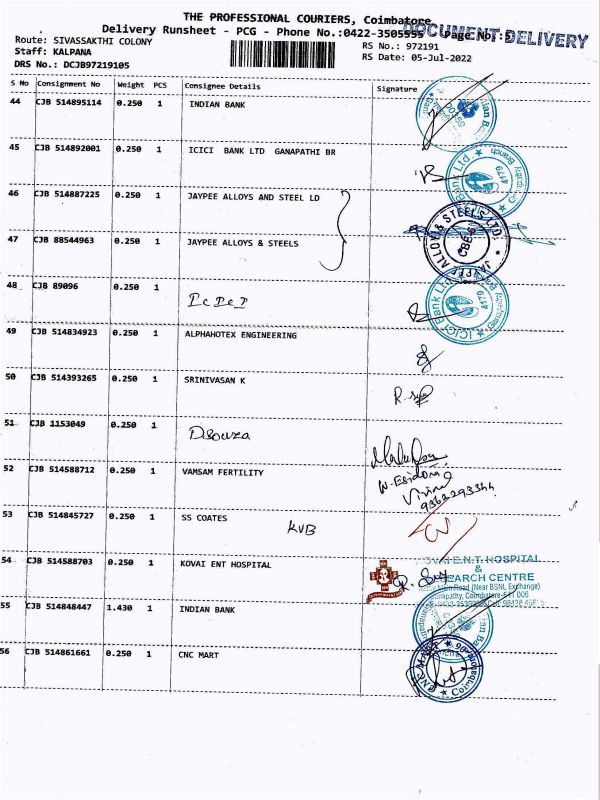 THE PROFESSIONAL COURIERS, Coimbatore
Delivery Runsheet - PCG - Phone No.:0422-3505555 Page No.:5
DOCUMENT DELIVERY
Route: SIVASSAKTHI COLONY
RS No.: 972191
Staff: KALPANA
RS Date: 05-Jul-2022
DRS No.: DCJB97219105
S No Consignment No Weight PCS Consignee Details Signature
44 CJB 514895114 0.250 1 INDIAN BANK
45 CJB 514892001 0.250 1 ICICI BANK LTD GANAPATHI BR
46 CJB 514887225 0.250 1 JAYPEE ALLOYS AND STEEL LD
47 CJB 88544963 0.250 1 JAYPEE ALLOYS & STEELS
48 CJB 89096 0.250 1
49 CJB 514834923 0.250 1 ALPHAHOTEX ENGINEERING
50 CJB 514393265 0.250 1 SRINIVASAN K
51 CJB 1153049 0.250 1 Dsouza
52 CJB 514588712 0.250 1 VAMSAM FERTILITY
53 CJB 514845727 0.250 1 SS COATES KVB
54 CJB 514588703 0.250 1 KOVAI ENT HOSPITAL
55 CJB 514848447 1.430 1 INDIAN BANK
56 CJB 514861661 0.250 1 CNC MART
4779
ICICI Bank Ltd
4779
E.N.T. HOSPITAL
&
CENTRE
Road (Near BSNL Exchange)
CNC MART
Coimbatore